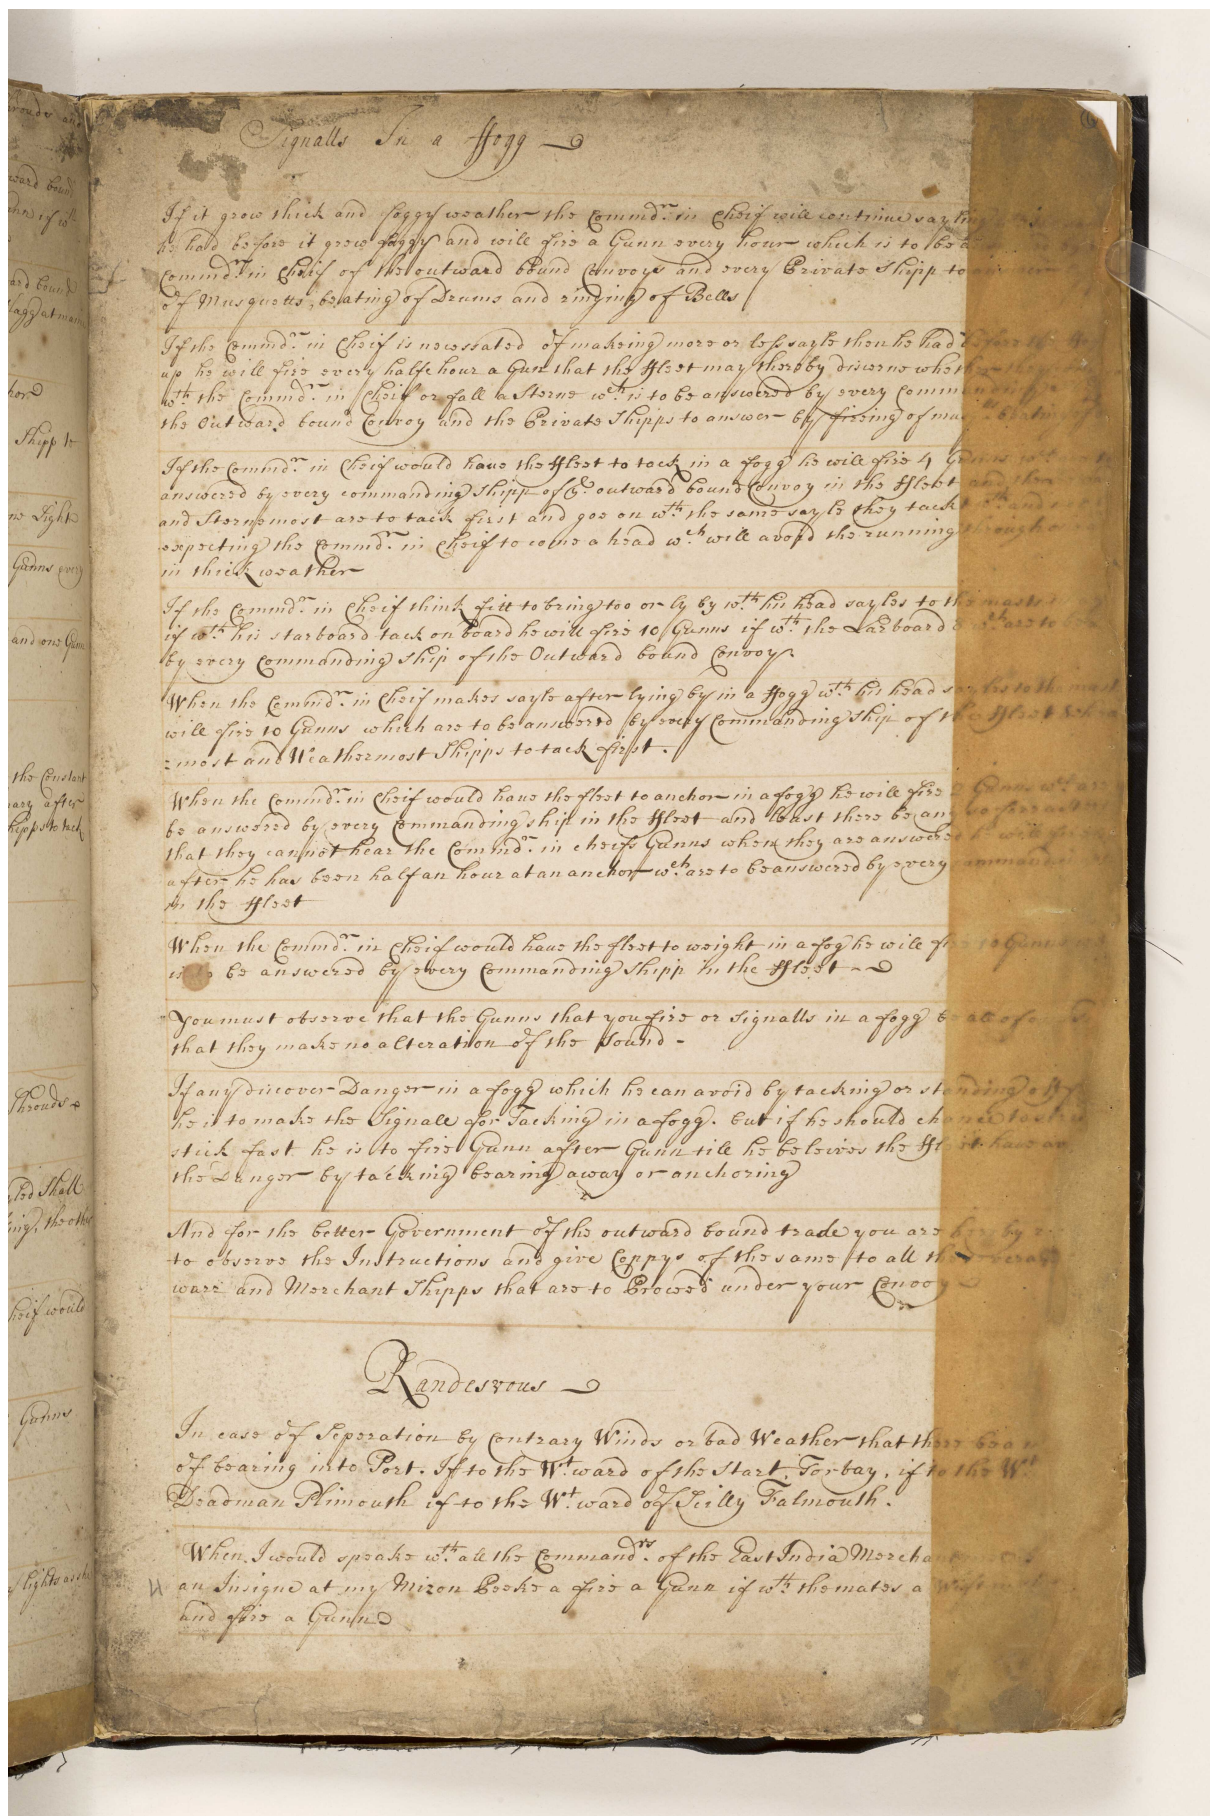 Signalls In a ffogg
If it grow thick and foggy weather the Commdr. in Cheif will continue sayling
he had before it grew foggy and will fire a Gunn every hour which is to be
Commdr. in Cheif of the outward bound Convoys and every Private Shipp to answer
of Musquetts, beating of Drums and ringing of Bells
If the Commdr. in Cheif is necessated of makeing more or less sayle then he had before the
up he will fire every halfe hour a Gun that the ffleet may thereby discerne whether they
wth. the Commdr. in Cheif or fall a Sterne wch. is to be answered by every Commanding
the Outward bound Convoy and the Private Shipps to answer by fireing of musqts. beating
If the Commdr. in Cheif would have the ffleet to tack in a fogg he will fire 4 Gunns wch. are to
answered by every commanding Shipp of ye. outward bound Convoy in the ffleet and then
and Sternemost are to tack first and goe on wth. the same sayle they tackt wth. and
expecting the Commdr. in Cheif to come a head wch. will avoyd the running through
in thick weather
If the Commdr. in Cheif think fitt to bring too or ly by wth. his head sayles to the mast
if wth. his starboard tack on board he will fire 10 Gunns if wth. the Larboard 8 wch. are to be
by every Commanding Ship of the Outward bound Convoy.
When the Commdr. in Cheif makes sayle after lying by in a ffogg wth. his head sayles to the mast
will fire 10 Gunns which are to be answered by every Commanding Ship of the ffleet
=most and Weathermost Shipps to tack first.
When the Commdr. in Cheif would have the fleet to anchor in a fogg he will fire 2 Gunns wch. are
be answered by every Commanding ship in the ffleet and least there be any so farr a
that they cannot hear the Commdr. in cheifs Gunns when they are answered he will
after he has been half an hour at an anchor wch. are to be answered by every Commanding
in the ffleet
When the Commdr. in Cheif would have the fleet to weight in a fog he will fire 10 Gunns
is to be answered by every Commanding Shipp in the ffleet
You must observe that the Gunns that you fire or Signalls in a fogg be all of
that they make no alteration of the Sound -
If any discover Danger in a fogg which he can avoid by tacking or standing
he is to make the Signall for Tacking in a fogg. but if he should chance to
stick fast he is to fire Gunn after Gunn till he beleives the ffleet have
the Danger by tacking bearing away or anchoring
And for the better Government of the outward bound trade you are hereby
to observe the Instructions and give Coppys of the same to all the
warr and Merchant Shipps that are to Proceed under your Convoy
Randesvous
In case of Seperation by contrary Winds or bad Weather that there be a
of bearing into Port. If to the Wt.ward of the Start, Torbay, if to the Wt
Deadman Plimouth if to the Wt.ward of Scilly Falmouth.
When I would speake wth. all the Commandrs. of the East India Merchant
an Insigne at my Mizon Peeke a fire a Gunn if wth. the mates a
and fire a Gunn